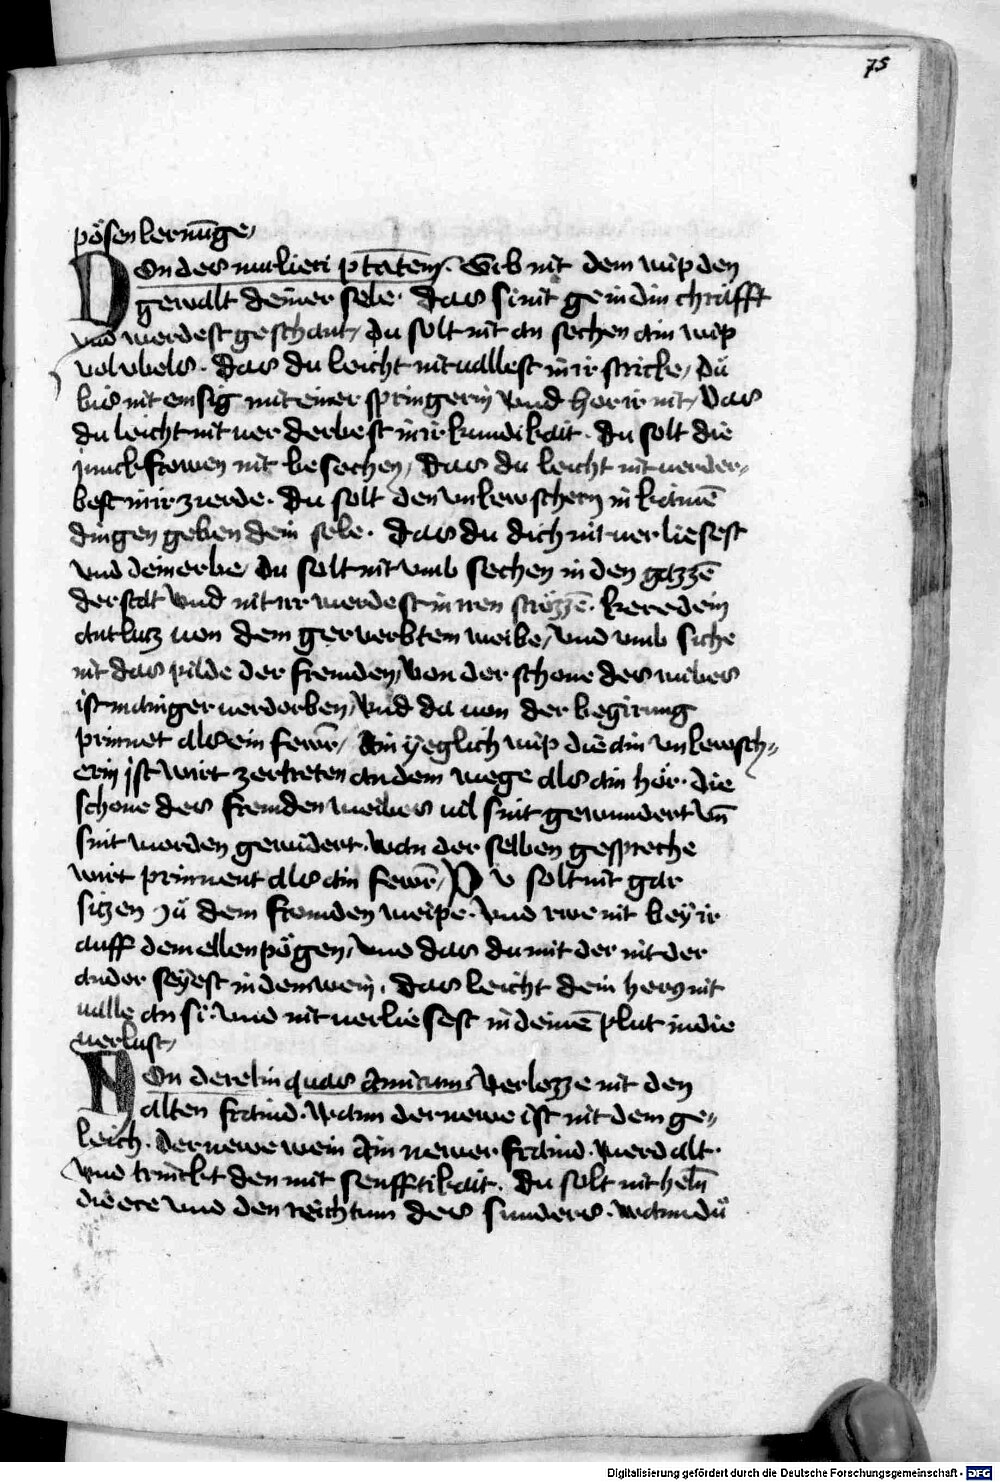 75
pösen lernūge
Non des mulieri ptātem. Gib nit dem wip den
gewalt deiner sele. das si nit ge in din chrafft
vnd werdest geschant, du solt nit an sechen ain wip
vol vbels. das du leicht nit vallest in ir stricke, du
bis nit emsig mit einer springerin vnd hor ir nit, das
du leicht nit verderbest in ir kundikait. du solt die
junckfrowen nit besechen, das du leicht nit verder-
best in ir zierde. du solt den vnkewschern in kainē
dingen geben dein sele. das du dich nit verliesest
vnd dein erbe, du solt nit vmb sechen in den gazzē
der stat vnd nit irr werdest in iren strözzē. kere dein
antlutz von dem geverbtem weibe, vnd vmb siche
nit das pilde der fremden, von der schone des wibes
ist maniger verdorben, vnd da von der begirung
prinnet als ein fewr, Ain yeglich wip die ain vnkewsch-
erin jst wirt zertreten an dem wege als ain hor. die
schone des fremden weibes vil sint gewundert vn̄
sint worden gewidert. wan der selben gespreche
wirt prinnent als ain fewr, Dv solt nit gar
sitzen zu dem fromden weipe. vnd rwe nit bey ir
auff dem ellenpögen, vnd das du mit der nit der
ander seyest in dem wein, das leicht dein hercz nit
valle an si. vnd nit verliesest in deinē plut in die
verlust,
Non derelinquas amicum Verlozze nit den
alten fraind. wann der newe ist nit dem ge-
leich. der newe wein Ain newer fraind. werd alt.
vnd trinckt den mit senfftikait. du solt nit heln̄
die ere vnd den reichtum des sunders. wann du
Digitalisierung gefördert durch die Deutsche Forschungsgemeinschaft - DFG